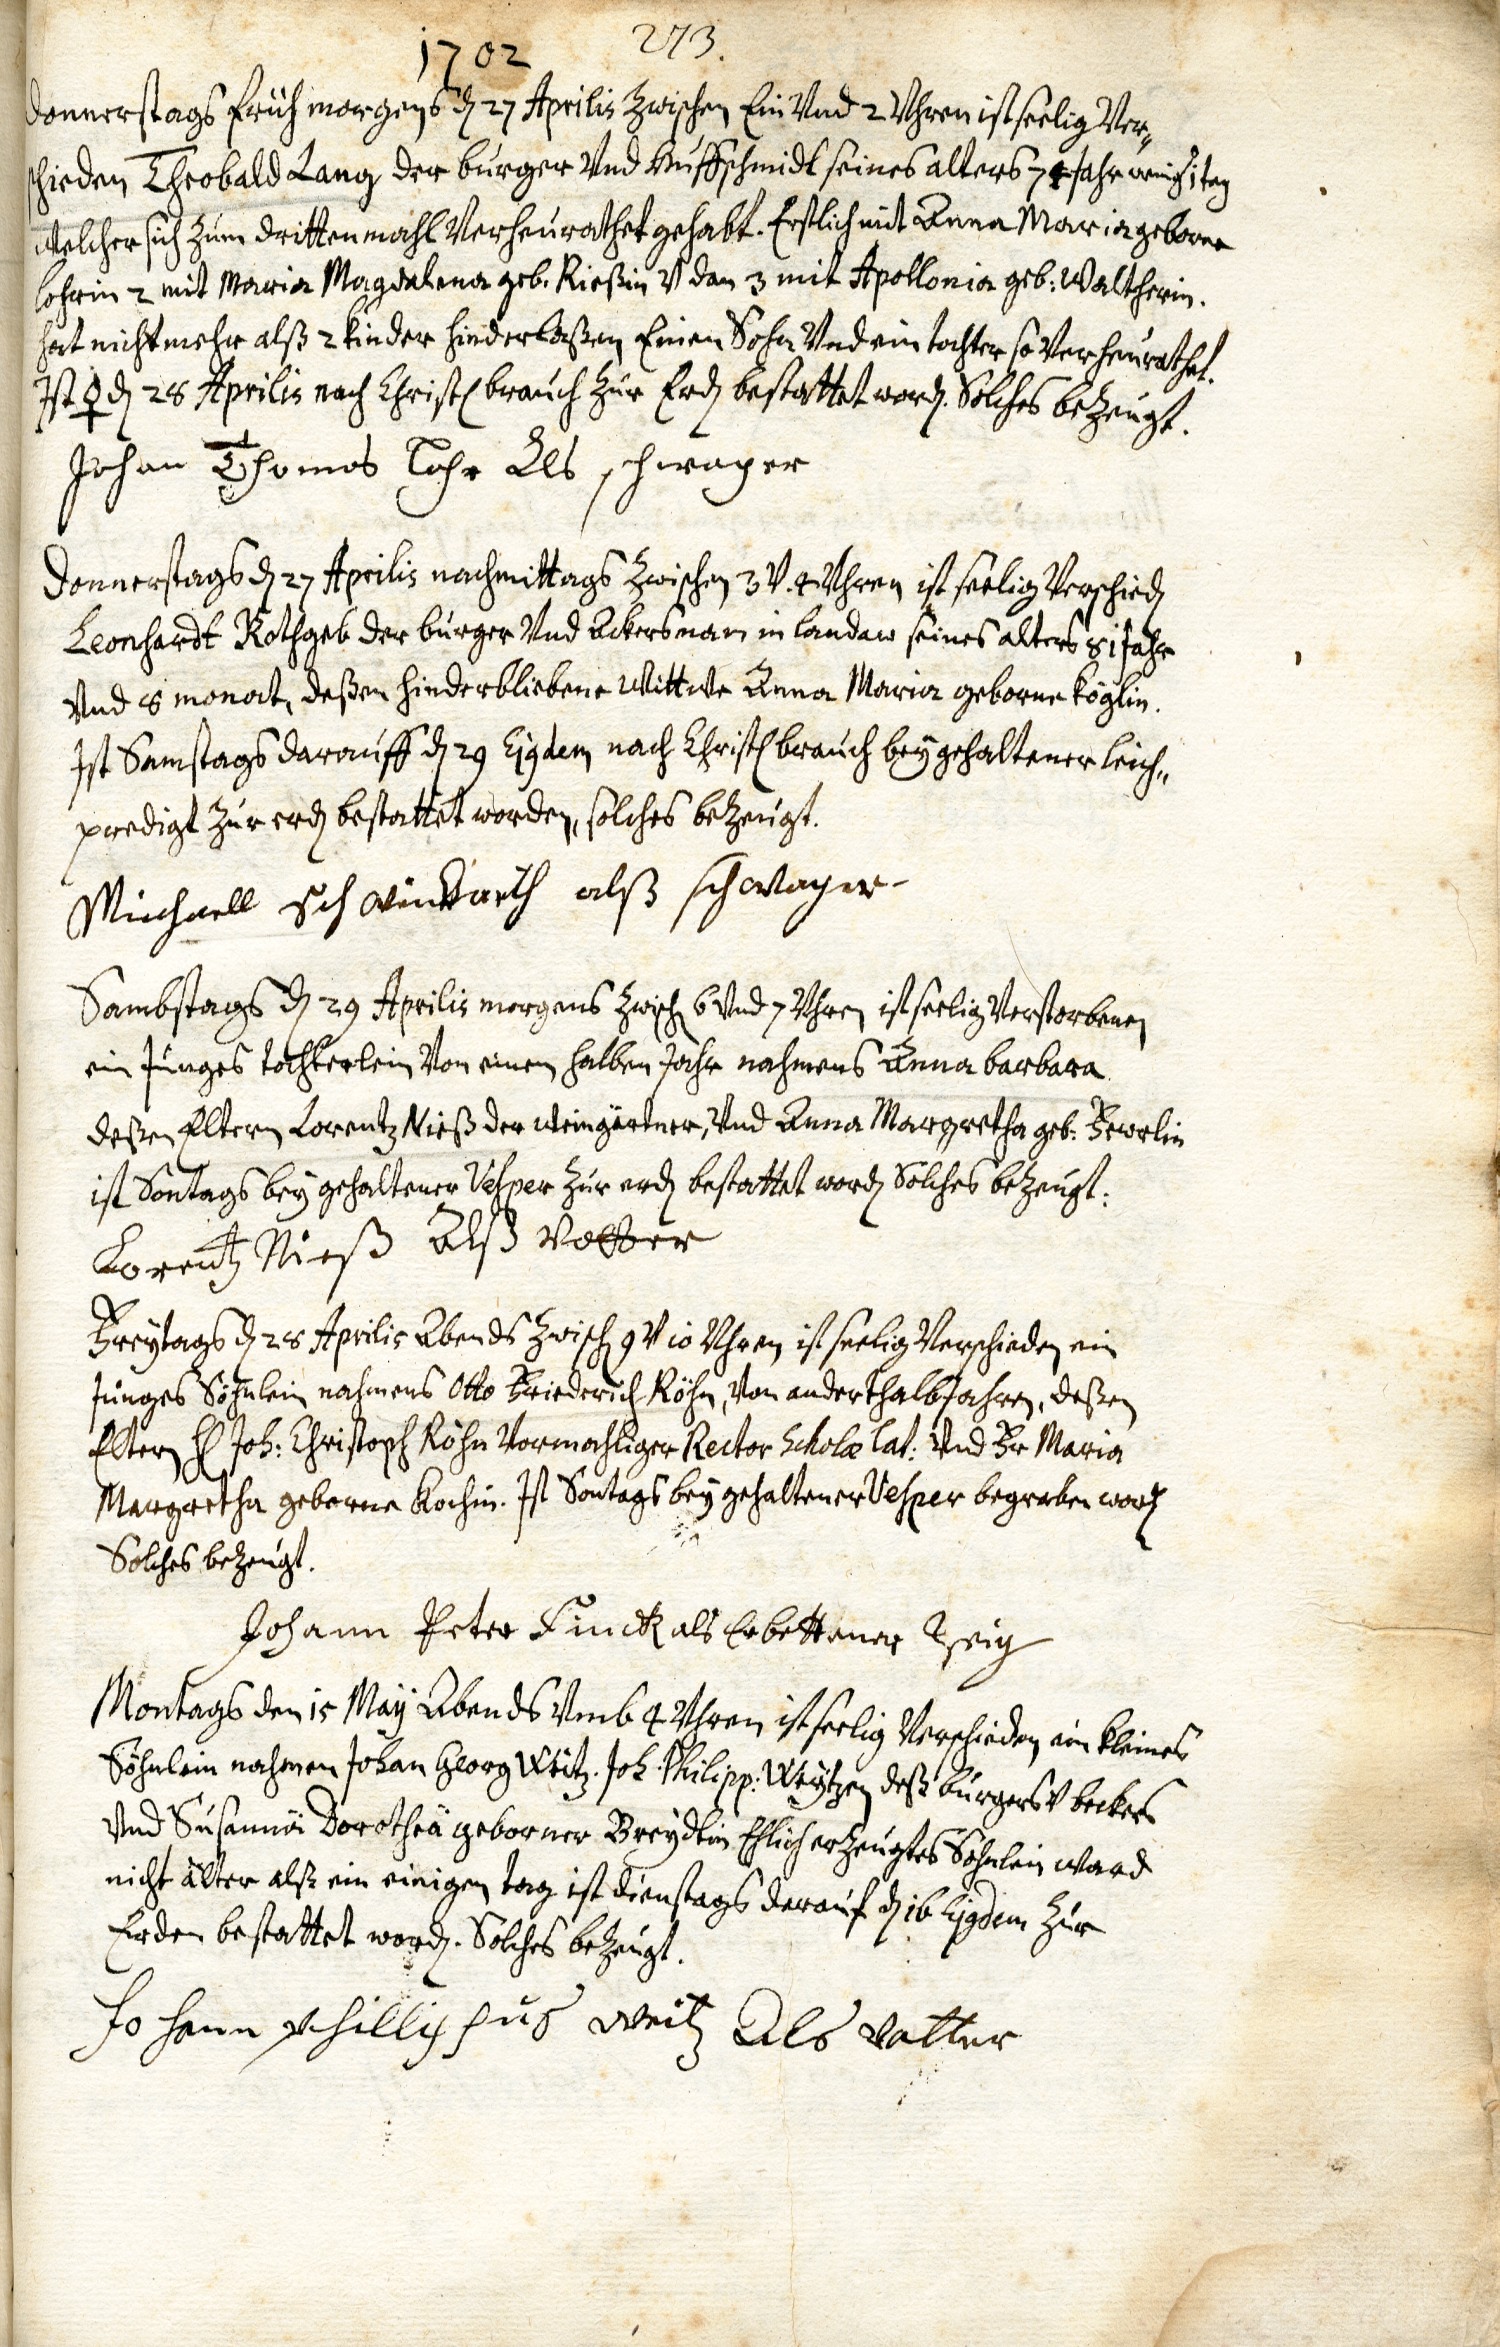 1702 273.
Donnerstags früh morgens d 27 Aprilis zwischen Ein Vnd 2 Vhren ist seelig Ver„
schieden Theobald Lang der burger Vnd Huffschmidt seines alters 74 Jahr wenig 1 tag
welcher sich zum drittenmahl Verheurathet gehabt. Erstlich mit Anna Maria geborne
Lohrin 2 mit Maria Magdalena geb. Rießin V dan 3 mit Apollonia geb: Waltherin.
hat nicht mehr alß 2 kinder hinderlaßen Einen Sohn Vnd ein tochter so Verheurathet.
Ist ♀ d 28 Aprilis nach Christl brauch zur Erd bestattet word. Solches bezeugt.
Johan Thomas Lohr Als schwager
Donnerstags d 27 Aprilis nachmittags zwischen 3 V. 4 Vhren ist seelig Verschied
Leonhardt Rothgeb der burger Vnd Ackersman in landaw seines alters 81 Jahr
Vnd 8 monat, deßen hinderbliebene Wittwe Anna Maria geborne Köglin.
Ist Samstags darauff d 29 Ejgdem nach Christl brauch bey gehaltener leich„
predigt zur erd bestattet worden, solches bezeugt.
Michaell alß schwager
Sambstags d 29 Aprilis morgens zwisch 6 Vnd 7 Vhren ist seelig Verstorbenen
ein Junges tochterlein Von einem halben Jahr nahmens Anna barbara
deßen Eltern Lorentz Nieß der weingärtner, Vnd Anna Margretha geb:
ist Sontags bey gehaltener Vesper zur erd bestattet word Solches bezeugt:
Lorentz Nieß Alß vatter
Freytags d 28 Aprilis Abends zwisch 9 V 10 Vhren ist seelig Verschieden ein
Junges Söhnlein nahmens Otto Friederich Röhn, Von anderthalb Jahren, deßen
Eltern H Joh: Christoph Röhn Vormahliger Rector Scholæ lat: Vnd Fr Maria
Margretha geborne Kochin. Ist Sontags bey gehaltener Vesper begraben word
Solches bezeugt.
Johann Peter Finck als Erbettener Zeig
Montags den 15 Maÿ Abends Vmb 4 Vhren ist seelig Verschieden ein kleines
Söhnlein nahmen Johan Georg Weitz. Joh. Philipp: Weytzen deß burgers V beckers
Vnd Susannä Dorotheä geborner Breydtin Ehlich erzeugtes Söhnlein ward
nicht älter alß ein einigen tag ist dienstags darauf d 16 Ejgdem zur
Erden bestattet word. Solches bezeugt.
Johann phillippus weitz Als vatter